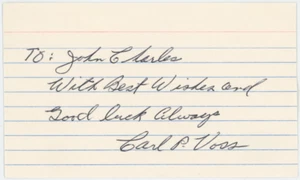 To: John Charles
With Best Wishes and
Good luck Always
Carl P. Voss